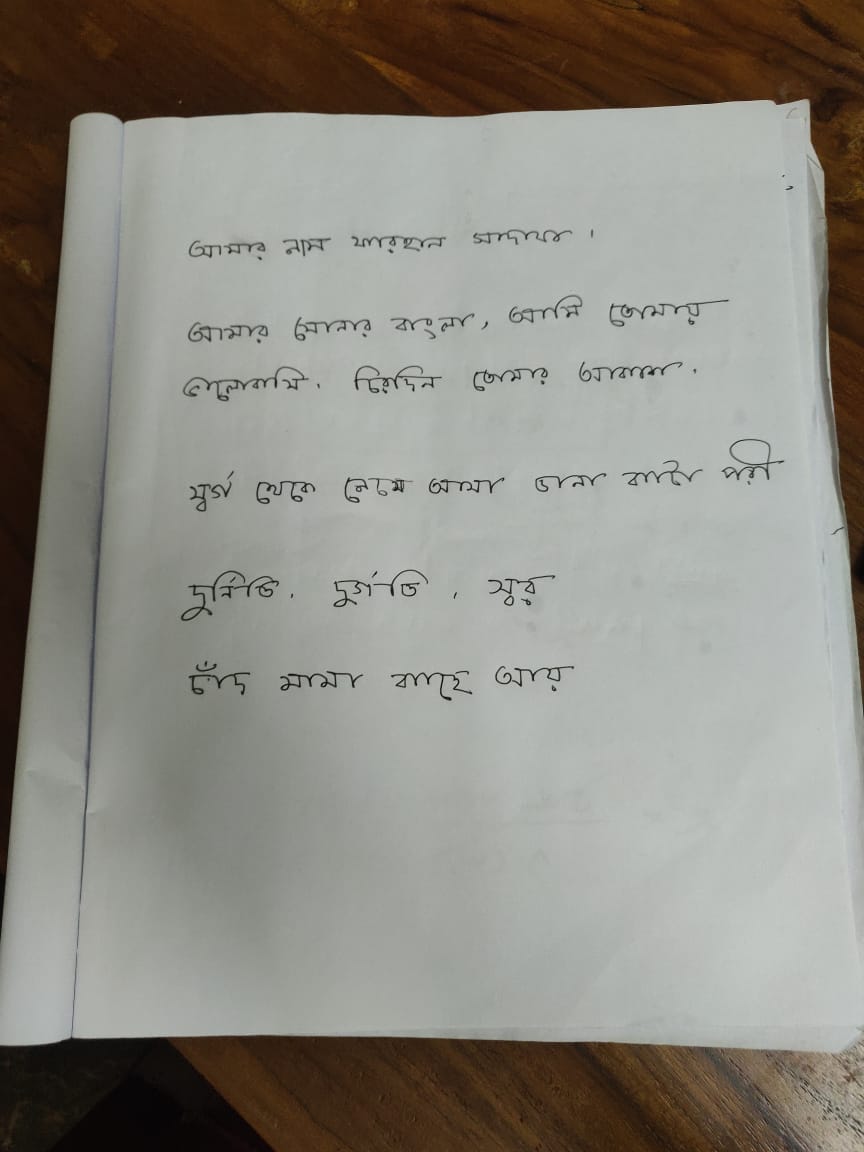 আমার নাম ফারহান সাদাফ।
আমার সোনার বাংলা, আমি তোমায়
ভালোবাসি. চিরদিন তোমার আকাশ.
স্বর্গ থেকে নেমে আসা ডানা কাটা পরী
দুর্নিতি, দুর্গতি,
চাঁদ মামা কাছে আয়